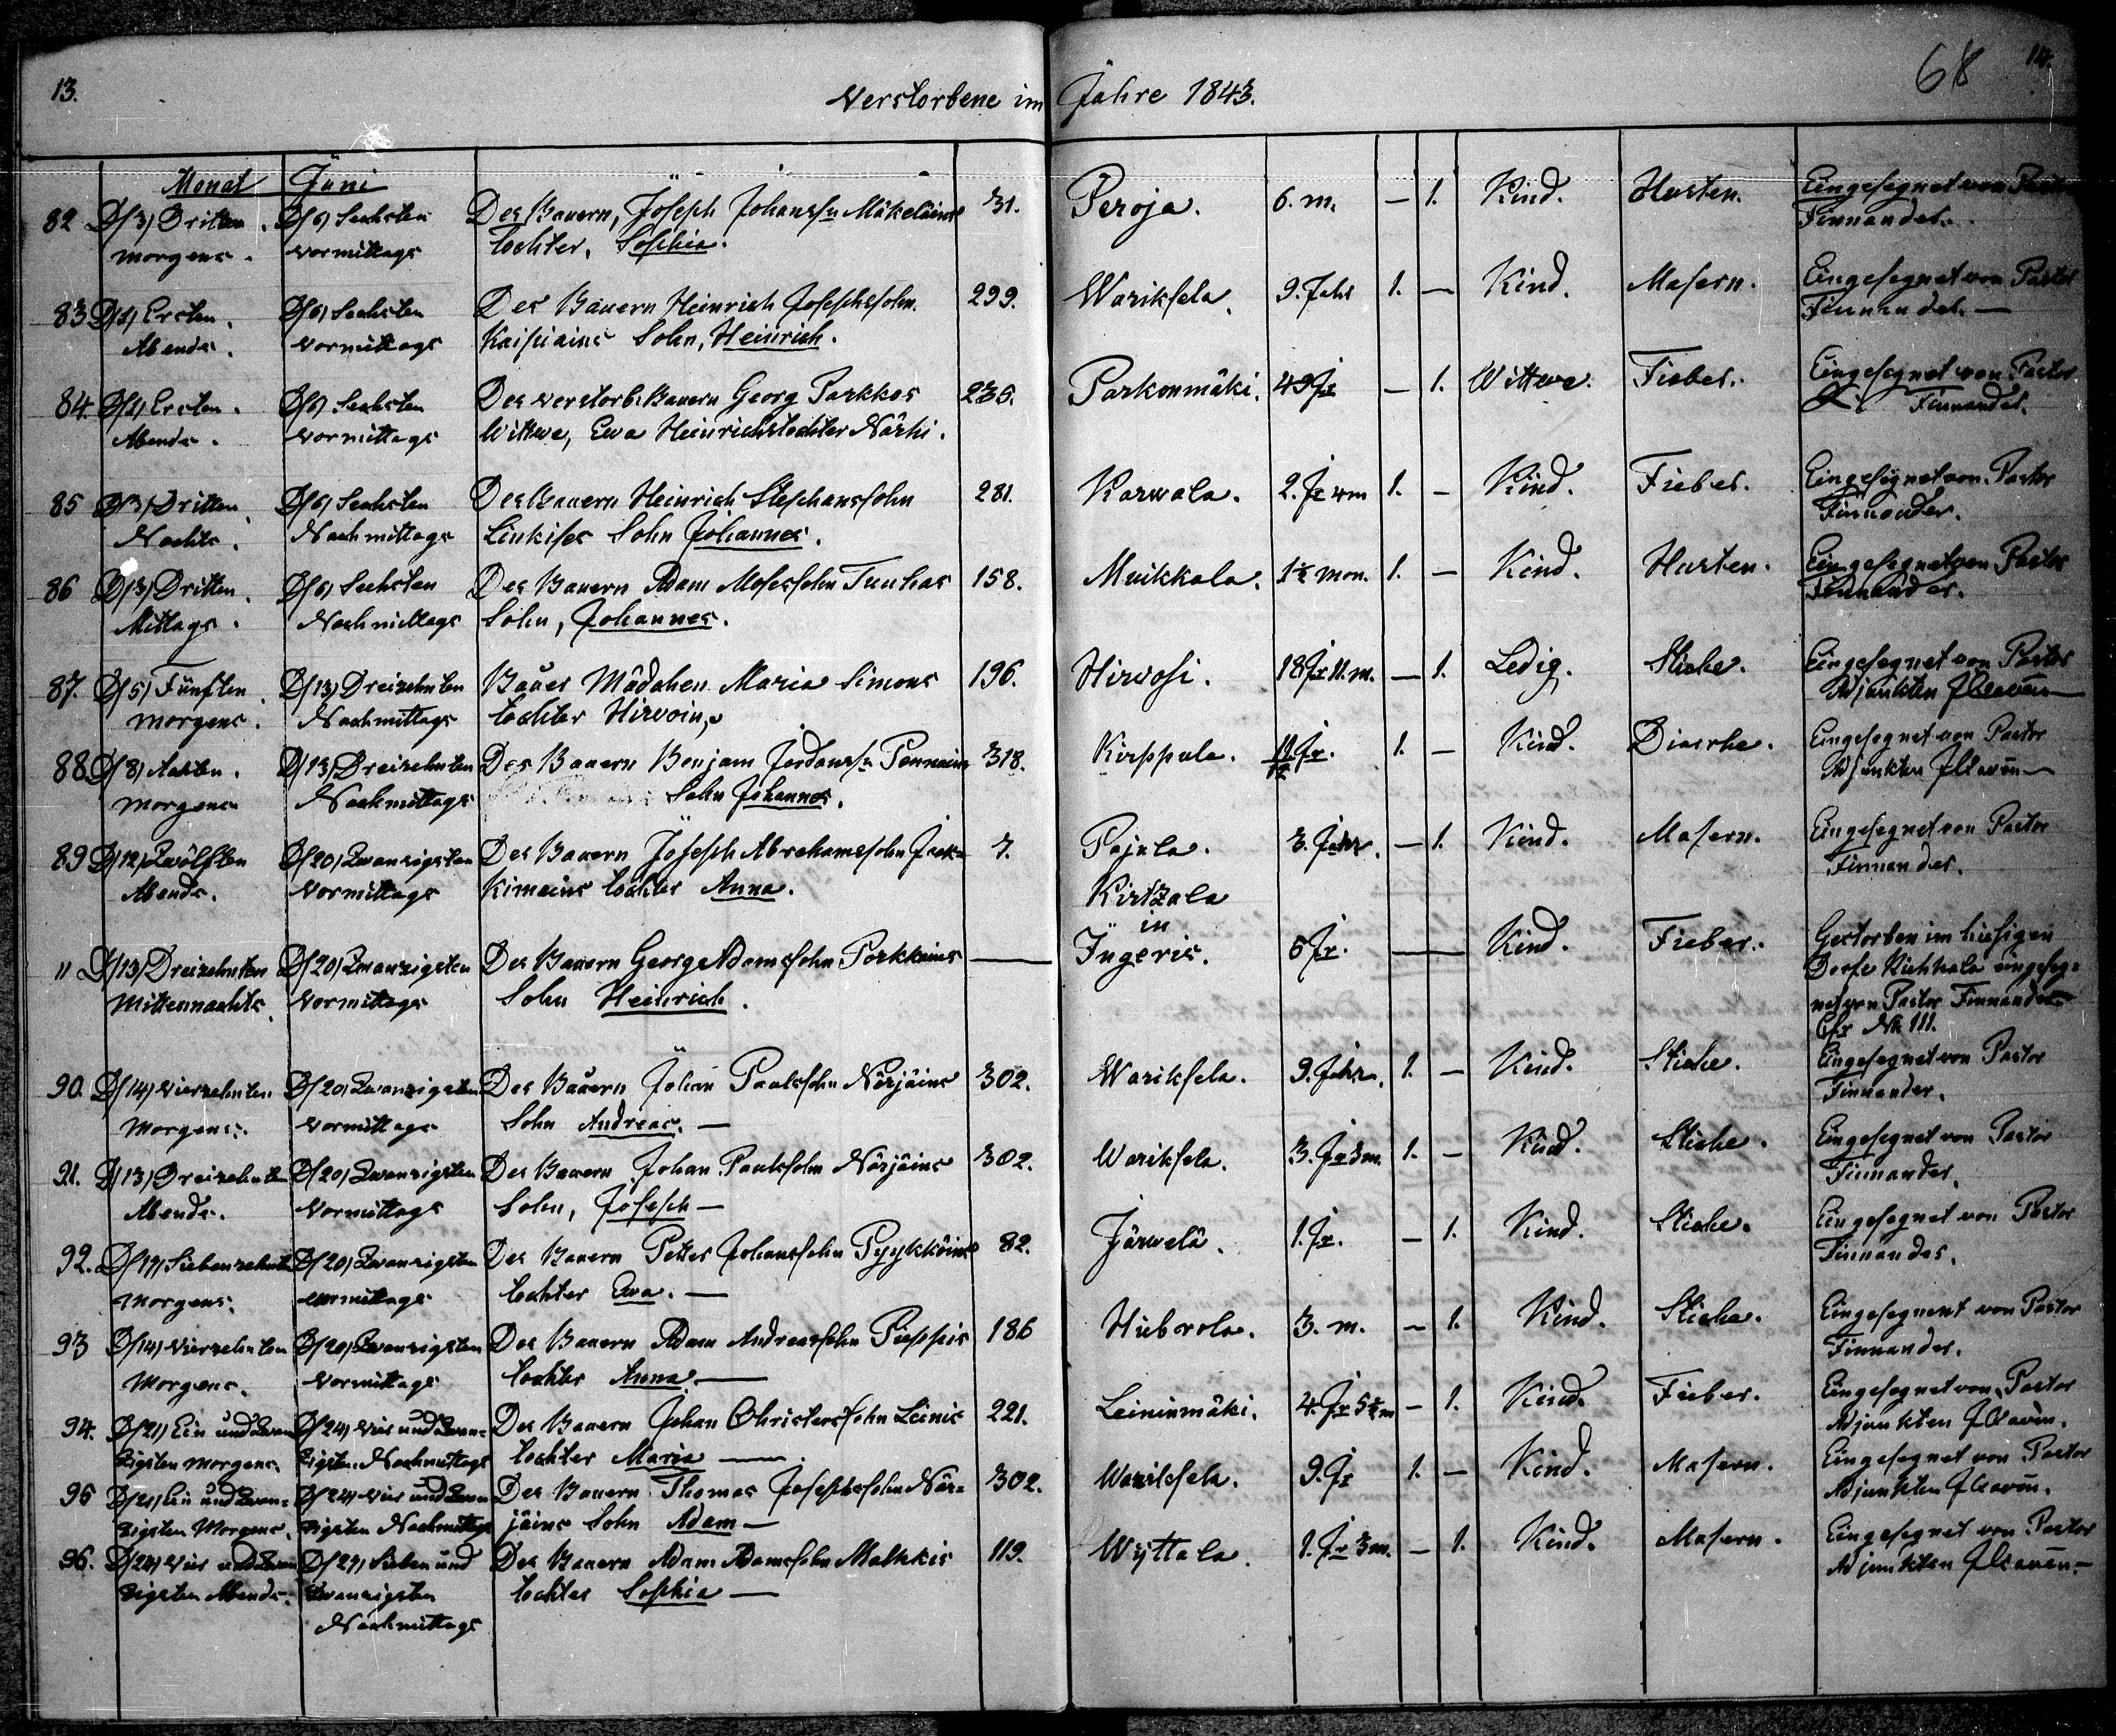 13.
Verstorbene im Jahre 1843.
68
14.
Monat Juni
82 D/3/ Dritten morgens. D/6/ Sechsten vormittags Des Bauern, Joseph Johanss: Mäkeläins 31. Peroja. 6. m. — 1. Kind. Husten. Eingesegnet von Pastor
tochter, Sophia. Finnander.
83 D/1/ Ersten. Abends. D/6/ Sechsten Vormittags Des Bauern Heinrich Josephssohn. 299. Wariksela. 9. Jahr 1. — Kind. Masern. Eingesegnet von Pastor
Kaipiains Sohn, Heinrich. Finnander. —
84. D/1/ Ersten. Abends. D/6/ Sechsten Vormittags Des verstorb. Bauern Georg Parkkos 235. Parkonmäki. 49 Jr — 1. Wittwe. Fieber. Eingesegnet von Pastor
Wittwe, Ewa Heinrichstochter Närhi. Finnander.
85 D/3/ Dritten. Nachts. D/6/ Sechsten Nachmittags Des Bauern Heinrich Stephanssohn 281. Karwala. 2. Jr 1. — Kind. Fieber. Eingesegnet von Pastor
Linkises Sohn Johannes. Finnander.
86 D/3/ Dritten. Mittags. D/6/ Sechsten Nachmittags Des Bauern Adam Mosessohn Tuuhas 158. Muikkala. 1½ mon. 1. — Kind. Husten. Eingesegnet von Pastor
Sohn, Johannes. Finnander.
87. D/5/ Fünften. morgens. D/13/ Dreizehnten Nachmittags Bauer Mädchen Maria Simons 196. Hirvosi. 18 Jr 11. m. — 1. Ledig. Stiche. Eingesegnet von Pastor
tochter Hirvoin, Adjunkten
88 D/8/ Achten. morgens D/13/ Dreizehnten Nachmittags Des Bauern Benjam Jordanss: Pennains 318. Kirppula. 11/12 Jr. 1. — Kind. Diarrhe. Eingesegnet von Pastor
Sohn Johannes. Adjunkten
89 D/12/ Zwölften Abends. D/20/ Zwanzigsten Vormittags Des Bauern Joseph Abrahamssohn Jaak= 7. Pajula. 3. Jahr. — 1. Kind. Masern. Eingesegnet von Pastor
kimains tochter Anna. Finnander.
" D/13/ Dreizehnten Mitternachts. D/20/ Zwanzigsten Vormittags Des Bauern Georg Adamssohn Porkkains — Kirtzala in Ingeris. 5 Jr. — Kind. Fieber. Gestorben im hiesigen
Sohn Heinrich. Dorfe eingeseg=
net von Pastor Finnander.
Cfr № 111.
90. D/14/ Vierzehnten Morgens. D/20/ Zwanzigsten Vormittags Des Bauern Johan Paulssohn Närjäins 302. Wariksela. 9. Jahr. 1. — Kind. Stiche. Eingesegnet von Pastor
Sohn Andreas. — Finnander.
91. D/13/ Dreizehnten Abends. D/20/ Zwanzigsten Vormittags Des Bauern Johan Paulssohn Närjäins 302. Wariksela. 3. Jr 3 m. 1. — Kind. Stiche. Eingesegnet von Pastor
Sohn, Joseph — Finnander.
92. D/17/ Siebenzehnten Morgens. D/20/ Zwanzigsten vormittags Des Bauern Peter Johanssohn Pyykköins 82. Järwelä. 1. Jr. — 1. Kind. Stiche. Eingesegnet von Pastor
tochter Ewa. — Finnander.
93 D/14/ Vierzehnten Morgens. D/20/ Zwanzigsten Vormittags Des Bauern Adam Andreassohn Pieppis 186 Hubrola. 3. m. — 1. Kind. Stiche. Eingesegnent von Pastor
tochter Anna — Finnander.
94. D/21/ Ein und Zwan= zigsten Morgens. D/24/ Vier und Zwan= zigsten Nachmittags Des Bauern Johan Christerssohn Leinis 221. Leininmäki. 4. Jr 5½ m — 1. Kind. Fieber. Eingesegnet von Pastor
tochter Maria — Adjunkten
95 D/21/ Ein und Zwan= zigsten Morgens. D/24/ Vier und Zwan zigsten Nachmittags Des Bauern Thomas Josephssohn När= 302. Wariksela. 9. Jr 1. — Kind. Masern. Eingesegnet von Pastor
jäins Sohn Adam — Adjunkten
96. D/24/ Vier und Zwan zigsten Abends. D/27/ Sieben und Zwanzigsten Nachmittags Des Bauern Adam Adamssohn Malkkis 119. Wyttala. 1. Jr 3 m. — 1. Kind. Masern. Eingesegnet von Pastor
tochter Sophia — Adjunkten